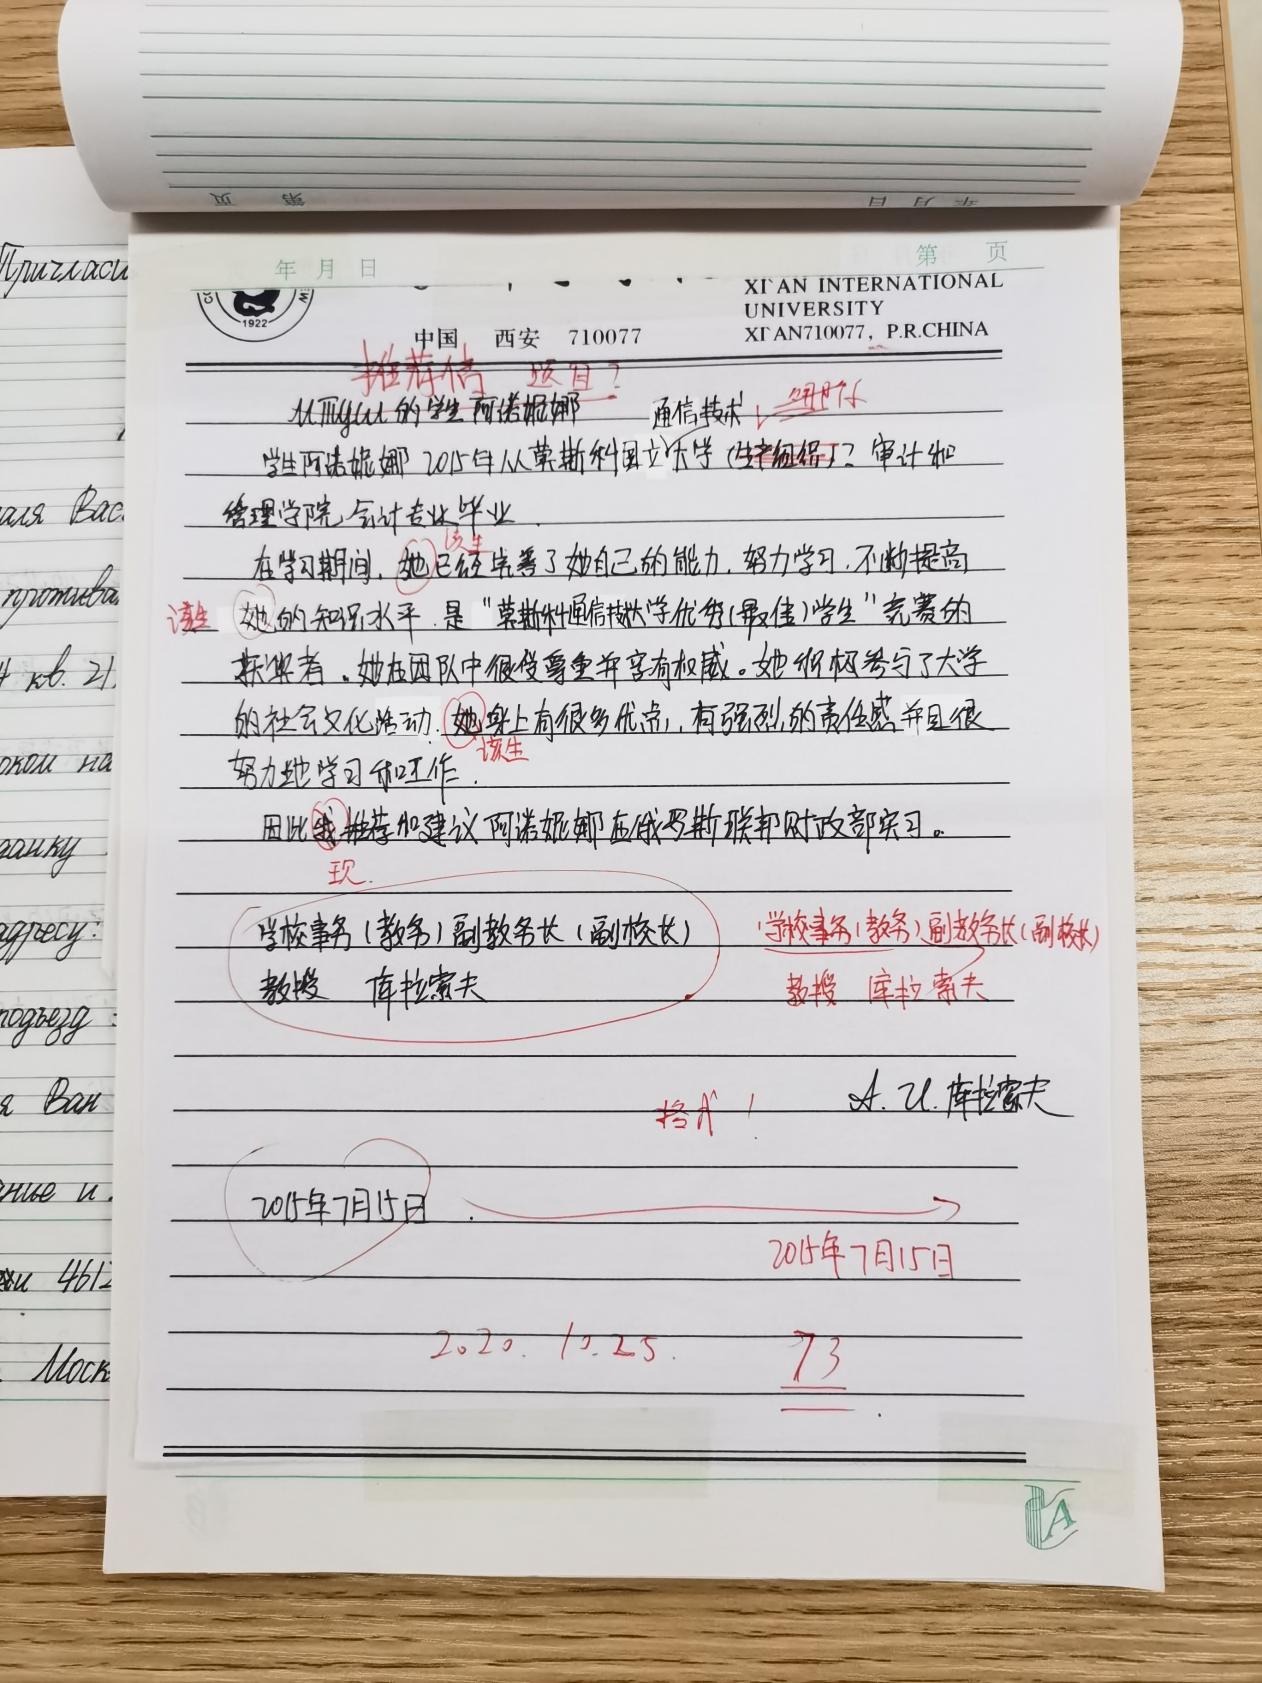 第 页
年 月 日
年 月 日
第 页
XI'AN INTERNATIONAL
UNIVERSITY
XI'AN710077, P.R.CHINA
1922
中国 西安 710077
推荐信 题目?
的学生阿诺妮娜
通信技术
学生阿诺妮娜 2015年从莫斯科国立大学 ? 审计和
管理学院会计专业毕业.
该生
在学习期间, 她已经完善了她自己的能力, 努力学习, 不断提高
该生 她的知识水平, 是"莫斯科通信技术大学优秀(最佳)学生"竞赛的
获奖者。她在团队中很受尊重并享有权威。她积极参与了大学
的社会文化活动, 她身上有很多优点, 有强烈的责任感并且很
该生
努力地学习和工作.
因此我推荐和建议阿诺妮娜在俄罗斯联邦财政部实习。
现
学校事务(教务)副教务长(副校长)
学校事务(教务)副教务长(副校长)
教授 库拉索夫
教授 库拉索夫
格式!
A. И. 库拉索夫
2015年7月15日
2015年7月15日
2020. 10. 25.
73
A
Пригласи
аля Вас
протива
4 кв. 21
оком на
данку
адресу:
подъезд
я Ван
ание и
ки 4612
Моск